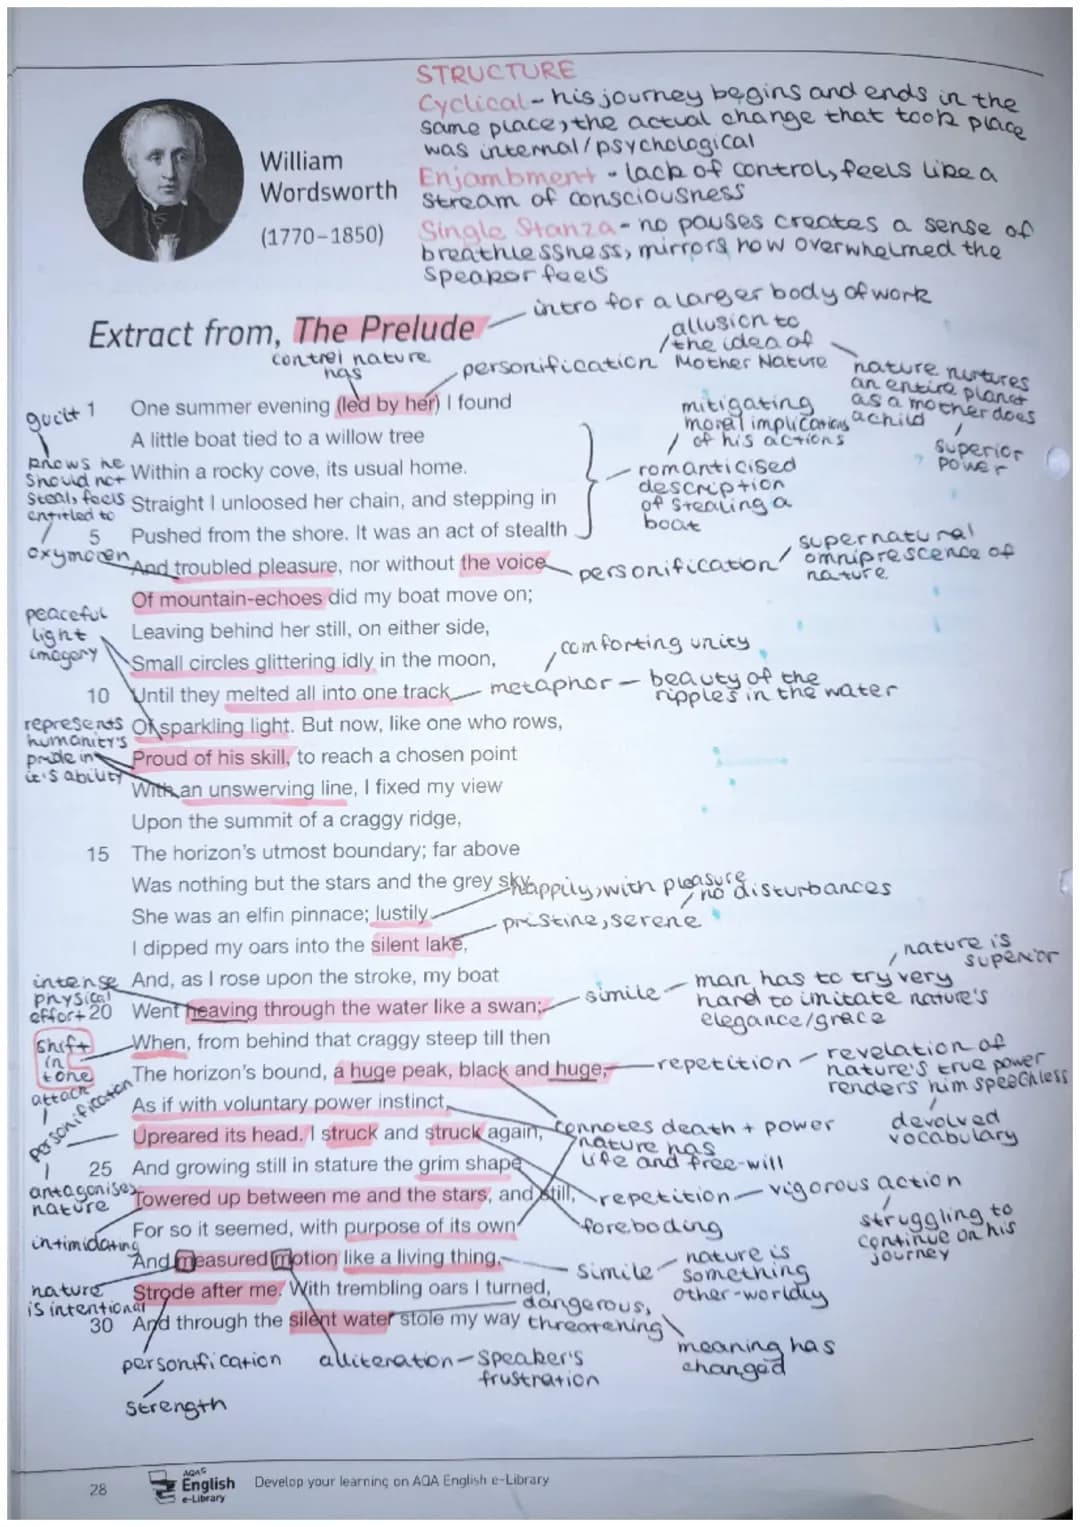 STRUCTURE
Cyclical - his journey begins and ends in the
same place, the actual change that took place
was internal/psychological
Enjambment - lack of control, feels like a
stream of consciousness
Single Stanza - no pauses creates a sense of
breathlessness, mirrors how overwhelmed the
speaker feels
William
Wordsworth
(1770–1850)
intro for a larger body of work
Extract from, The Prelude
control nature
has
personification
allusion to
the idea of
Mother Nature
nature nurtures
an entire planet
as a mother does
a child
superior
power
guilt
1 One summer evening (led by her) I found
mitigating
moral implications
of his actions
A little boat tied to a willow tree
knows he
should not
steal, feels
entitled to
Within a rocky cove, its usual home.
romanticised
description
of stealing a
boat
Straight I unloosed her chain, and stepping in
5 Pushed from the shore. It was an act of stealth
oxymoron
And troubled pleasure, nor without the voice
personification
supernatural
omniprescence of
nature
Of mountain-echoes did my boat move on;
peaceful
light
imagery
Leaving behind her still, on either side,
Small circles glittering idly in the moon,
comforting unity
10 Until they melted all into one track
metaphor - beauty of the
ripples in the water
represents
humanity's
pride in
it's ability
Of sparkling light. But now, like one who rows,
Proud of his skill, to reach a chosen point
With an unswerving line, I fixed my view
Upon the summit of a craggy ridge,
15 The horizon's utmost boundary; far above
Was nothing but the stars and the grey sky.
happily, with pleasure
no disturbances
She was an elfin pinnace; lustily
pristine, serene
I dipped my oars into the silent lake,
nature is
superior
intense
physical
effort
And, as I rose upon the stroke, my boat
20 Went heaving through the water like a swan;
simile
man has to try very
hard to imitate nature's
elegance/grace
shift
in
tone
When, from behind that craggy steep till then
The horizon's bound, a huge peak, black and huge,
repetition - revelation of
nature's true power
renders him speechless
devolved
vocabulary
attack
personification
As if with voluntary power instinct,
connotes death + power
Upreared its head. I struck and struck again,
nature has
life and free-will
25 And growing still in stature the grim shape
antagonises
nature
Towered up between me and the stars, and still,
repetition - vigorous action
struggling to
continue on his
journey
For so it seemed, with purpose of its own
foreboding
intimidating
And measured motion like a living thing,
simile
nature is
something
other-worldly
nature
is intentional
Strode after me. With trembling oars I turned,
dangerous,
threatening
30 And through the silent water stole my way
meaning has
changed
personification
strength
alliteration - speaker's
frustration
28
AQA
English
e-Library
Develop your learning on AQA English e-Library